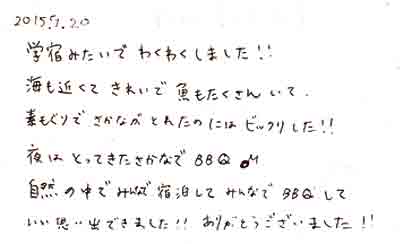 2015.7.20
学宿みたいで わくわくしました!!
海も近くて きれいで 魚もたくさん いて、
素もぐりで さかなが とれたのには ビックリした!!
夜は とってきたさかなで BBQ
自然の中で みんなで 宿泊して みんなで BBQ して
いい思い出できました!! ありがとうございました!!